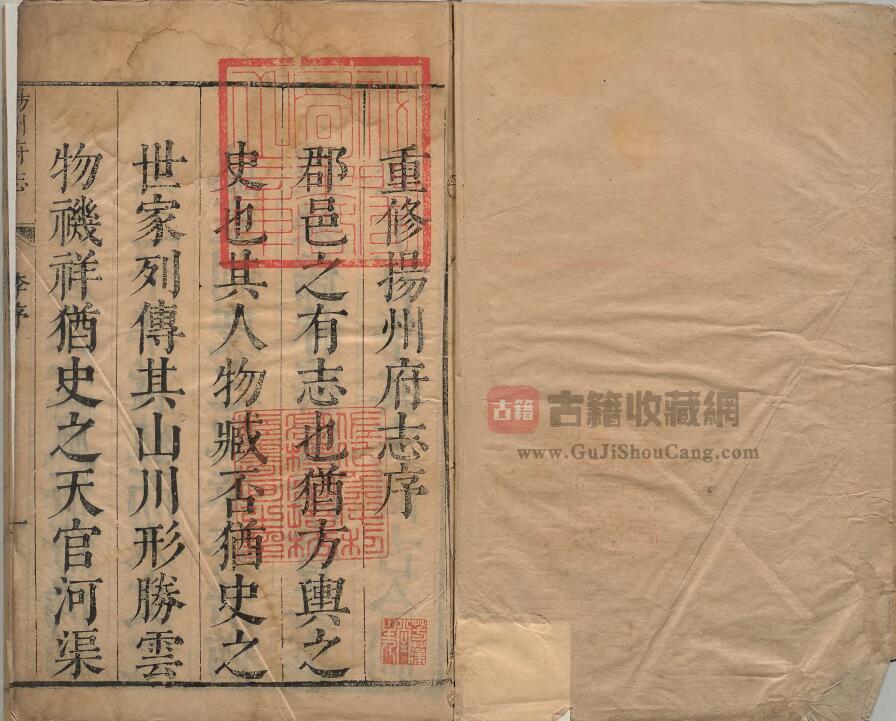 重修揚州府志序
郡邑之有志也猶方輿之
史也其人物臧否猶史之
世家列傳其山川形勝雲
物禨祥猶史之天官河渠
揚州府志
李序
一
古籍
古籍收藏網
www.GuJiShouCang.com